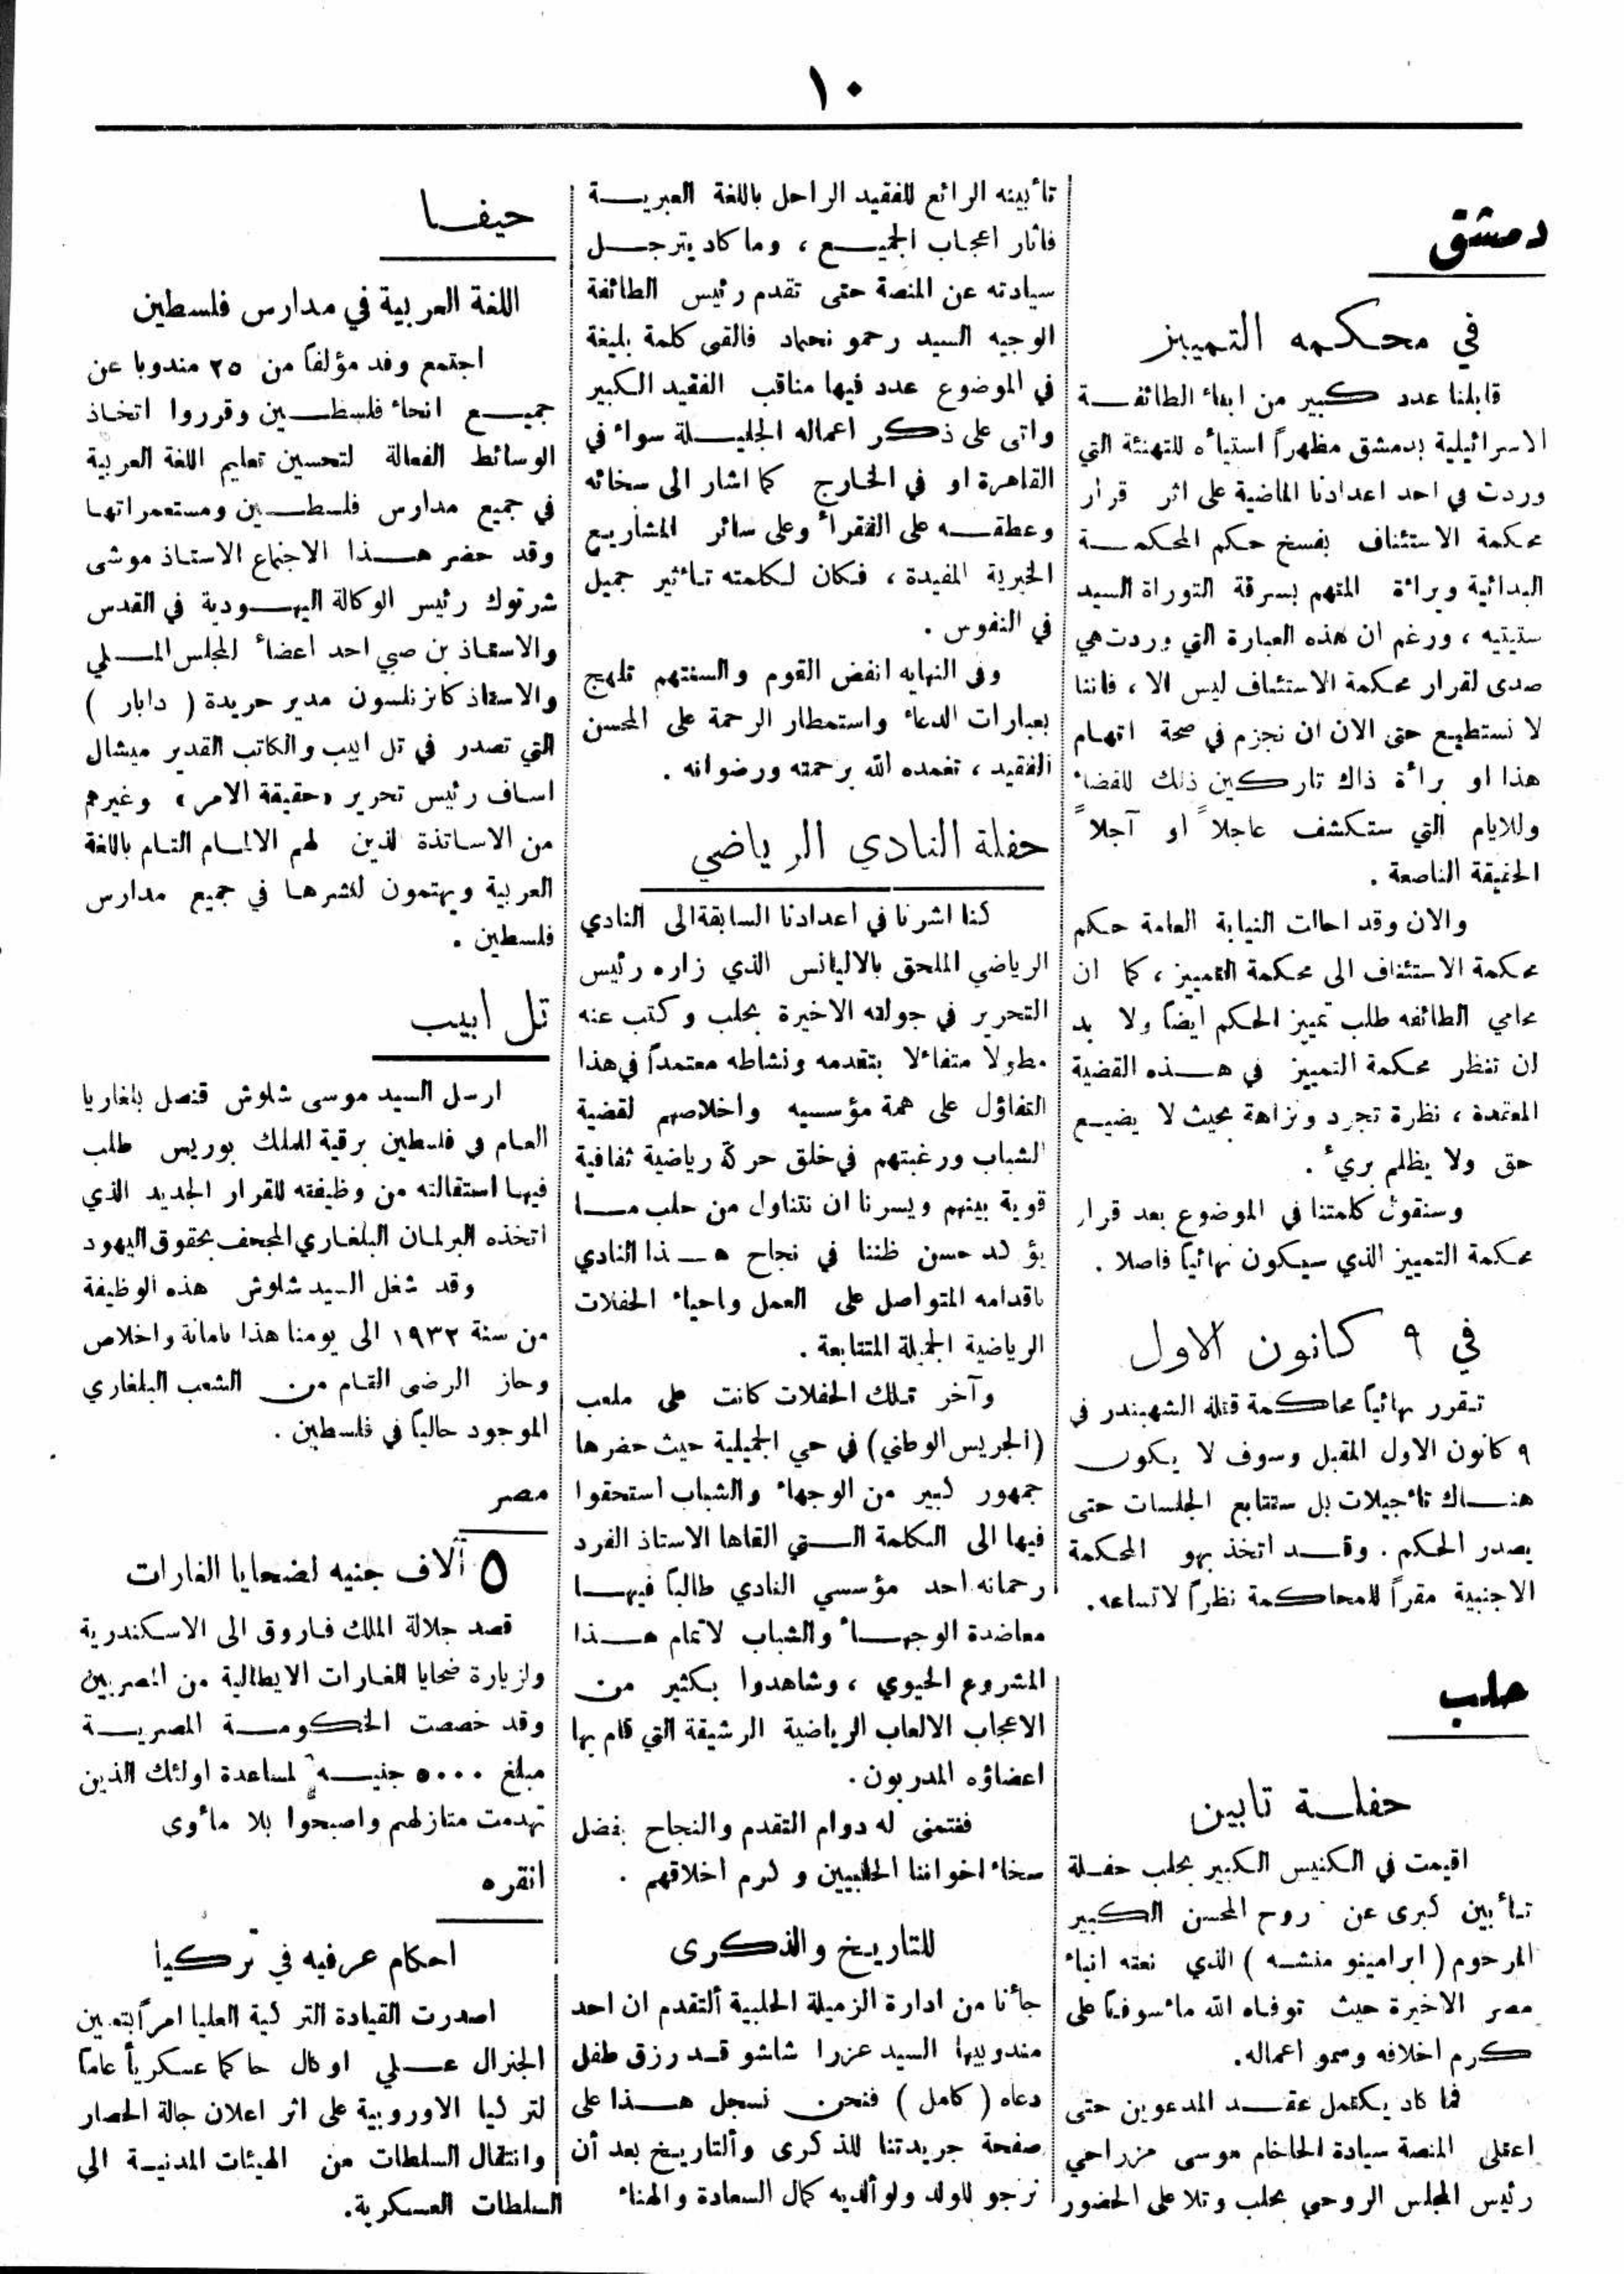 ١٠
دمشق
في محكمه التمييز
قابلنا عدد كبير من ابناء الطائفة
الاسرائيلية بدمشق مظهراً استيأه للتهنئة التي
وردت في احد اعدادنا الماضية على اثر قرار
محكمة الاستئناف بفسخ حكم المحكمة
البدائية وبراءة المتهم بسرقة التوراة السيد
ستيتيه ، ورغم ان هذه العبارة التي وردت هي
صدى لقرار محكمة الاستئناف ليس الا ، فاننا
لا نستطيع حتى الان ان نجزم في صحة اتهام
هذا او برأة ذاك تاركين ذلك للقضاء
وللايام التي ستكشف عاجلاً او آجلاً
الحقيقة الناصعة .
والان وقد احالت النيابة العامة حكم
محكمة الاستئناف الى محكمة التمييز ، كما ان
محامي الطائفه طلب تمييز الحكم ايضاً ولا بد
ان تنظر محكمة التمييز في هذه القضية
المعقدة ، نظرة تجرد ونزاهة بحيث لا يضيع
حق ولا يظلم بريء .
وسنقول كلمتنا في الموضوع بعد قرار
محكمة التمييز الذي سيكون نهائياً فاصلا .
في ٩ كانون الاول
تقرر نهائياً محاكمة قتلة الشهبندر في
٩ كانون الاول المقبل وسوف لا يكون
هناك تأجيلات بل ستتابع الجلسات حتى
يصدر الحكم . وقد اتخذ بهو المحكمة
الاجنبية مقراً للمحاكمة نظراً لاتساعه.
حلب
حفلة تابين
اقيمت في الكنيس الكبير بحلب حفلة
تأبين كبرى عن روح المحسن الكبير
المرحوم ( ابرامينو منشه ) الذي نعته انباء
مصر الاخيرة حيث توفاه الله مأسوفاً على
كرم اخلاقه وسمو اعماله.
فما كاد يكتمل عقد المدعوين حتى
اعتلى المنصة سيادة الحاخام موسى مزراحي
رئيس المجلس الروحي بحلب وتلا على الحضور
تأبينه الرائع للفقيد الراحل باللغة العبرية
فاثار اعجاب الجميع ، وما كاد يترجل
سيادته عن المنصة حتى تقدم رئيس الطائفة
الوجيه السيد رحمو نحماد فالقى كلمة بليغة
في الموضوع عدد فيها مناقب الفقيد الكبير
واتى على ذكر اعماله الجليلة سواء في
القاهرة او في الخارج كما اشار الى سخائه
وعطفه على الفقراء وعلى سائر المشاريع
الخيرية المفيدة ، فكان لكلمته تأثير جميل
في النفوس .
وفي النهايه انفض القوم والسنتهم تلهج
بعبارات الدعاء واستمطار الرحمة على المحسن
الفقيد ، تغمده الله برحمته ورضوانه .
حفلة النادي الرياضي
كنا اشرنا في اعدادنا السابقة الى النادي
الرياضي الملحق بالاليانس الذي زاره رئيس
التحرير في جولته الاخيرة بحلب وكتب عنه
مطولا متفائلا بتقدمه ونشاطه معتمداً في هذا
التفاؤل على همة مؤسسيه واخلاصهم لقضية
الشباب ورغبتهم في خلق حركة رياضية ثقافية
قوية بينهم ويسرنا ان نتناول من حلب ما
يؤكد حسن ظننا في نجاح هذا النادي
باقدامه المتواصل على العمل واحياء الحفلات
الرياضية الجميلة المتتابعة .
وآخر تلك الحفلات كانت على ملعب
(الجريس الوطني) في حي الجميلية حيث حضرها
جمهور كبير من الوجهاء والشباب استحقوا
فيها الى الكلمة التي القاها الاستاذ الفرد
رحمانه احد مؤسسي النادي طالباً فيها
معاضدة الوجهاء والشباب لاتمام هذا
المشروع الحيوي ، وشاهدوا بكثير من
الاعجاب الالعاب الرياضية الرشيقة التي قام بها
اعضاؤه المدربون.
فنتمنى له دوام التقدم والنجاح بفضل
سخاء اخواننا الحلبيين وكرم اخلاقهم .
للتاريخ والذكرى
جأنا من ادارة الزميلة الحلبية ألتقدم ان احد
مندوبيها السيد عزرا شاشو قد رزق طفل
دعاه ( كامل ) فنحن نسجل هذا على
صفحة جريدتنا للذكرى وألتاريخ بعد أن
نرجو للولد ولوألديه كمال السعادة والهناء
حيفا
اللغة العربية في مدارس فلسطين
اجتمع وفد مؤلفاً من ٢٥ مندوبا عن
جميع انحاء فلسطين وقرروا اتخاذ
الوسائط الفعالة لتحسين تعليم اللغة العربية
في جميع مدارس فلسطين ومستعمراتها
وقد حضر هذا الاجتماع الاستاذ موشى
شرتوك رئيس الوكالة اليهودية في القدس
والاستاذ بن صبي احد اعضاء المجلس الملي
والاستاذ كاتزنلسون مدير جريدة ( دابار )
التي تصدر في تل ابيب والكاتب القدير ميشال
اساف رئيس تحرير «حقيقة الامر» وغيرهم
من الاساتذة الذين لهم الالمام التام باللغة
العربية ويهتمون لنشرها في جميع مدارس
فلسطين .
تل ابيب
ارسل السيد موسى شلوش قنصل بلغاريا
العام في فلسطين برقية للملك بوريس طلب
فيها استقالته من وظيفته للقرار الجديد الذي
اتخذه البرلمان البلغاري المجحف بحقوق اليهود
وقد شغل السيد شلوش هذه الوظيفة
من سنة ١٩٣٢ الى يومنا هذا بامانة واخلاص
وحاز الرضى التام من الشعب البلغاري
الموجود حالياً في فلسطين .
مصر
٥ آلاف جنيه لضحايا الغارات
قصد جلالة الملك فاروق الى الاسكندرية
ولزيارة ضحايا الغارات الايطالية من المصريين
وقد خصصت الحكومة المصرية
مبلغ ٥٠٠٠ جنيه لمساعدة اولئك الذين
تهدمت منازلهم واصبحوا بلا مأوى
انقره
احكام عرفيه في تركيا
اصدرت القيادة التركية العليا امراً بتعيين
الجنرال علي اوكال حاكما عسكرياً عاماً
لتركيا الاوروبية على اثر اعلان حالة الحصار
وانتقال السلطات من الهيئات المدنية الي
السلطات العسكرية.